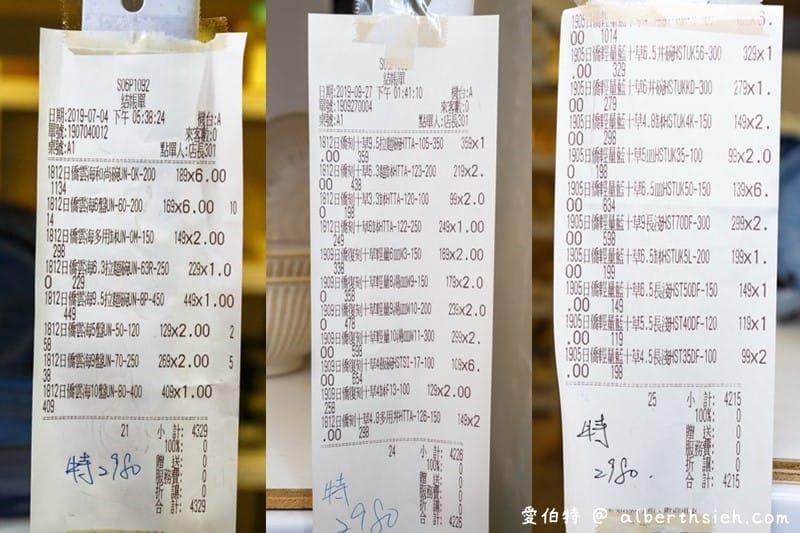 S06P1092
結帳單
日期:2019-07-04 下午 05:38:24 機台:A
單號:1907040012 來客數:0
桌號:A1 點單人:店長301
1812日僑雲海和尚碗UN-OK-200 189x6.00
1134
1812日僑雲海6盤UN-60-200 169x6.00 10
14
1812日僑雲海多用缽UN-OM-150 149x2.00
298
1812日僑雲海6.3拉麵碗UN-63R-250 229x1.0
0 229
1812日僑雲海9.5拉麵碗UN-BP-450 449x1.00
449
1812日僑雲海5盤UN-50-120 129x2.00 2
58
1812日僑雲海9盤UN-70-250 269x2.00 5
38
1812日僑雲海10盤UN-80-400 409x1.00
409
21 小 計: 4329
100%: 0
贈 送: 0
服務費: 0
折 讓: 0
合 計: 4329
特2980
結帳單
日期:2019-09-27 下午 01:41:10 機台:A
單號:1909270004 來客數:0
桌號:A1 點單人:店長301
1812日僑刻十草9.5拉麵碗HTTA-105-350 359x1
.00 359
1812日僑刻十草6.3麵缽HTTA-123-200 219x2.
00 438
1812日僑刻十草3.3缽HTTA-120-100 99x2.0
0 198
1812日僑刻十草6缽HTTA-122-250 249x1.00
249
1909日僑復刻十草輕量6皿N3-150 169x2.00
338
1909日僑復刻十草輕量8楕皿N9-150 179x2.0
0 358
1909日僑復刻十草輕量9楕皿N10-200 239x2.0
0 478
1909日僑復刻十草輕量10楕皿N11-300 299x2.
00 598
1909日僑復刻十草4飯碗HSTSI-17-100 109x6.
00 654
1909日僑復刻十草4缽F13-100 129x2.00
258
1812日僑刻十草4.8多用丼HTTA-126-150 149x2
.00 298
24 小 計: 4226
100%: 0
贈 送: 0
服務費: 0
折 讓: 0
合 計: 4226
特
2980
.00 1014
1905日僑輕量藍十草6.5丼碗HSTUK56-300 329x1
.00 329
1905日僑輕量藍十草6丼碗HSTUKKD-300 279x1.
00 279
1905日僑輕量藍十草4.8缽HSTUK4K-150 149x2.
00 298
1905日僑輕量藍十草5皿HSTUK35-100 99x2.0
0 198
1905日僑輕量藍十草6.5皿HSTUK50-150 139x6.
00 834
1905日僑輕量藍十草9長盤HST70DF-300 299x2.
00 598
1905日僑輕量藍十草6.5缽HSTUK5L-200 199x1.
00 199
1905日僑輕量藍十草6.5長盤HST50DF-150 149x1
.00 149
1905日僑輕量藍十草5.5長盤HST40DF-120 119x1
.00 119
1905日僑輕量藍十草4.5長盤HST35DF-100 99x2
.00 198
25 小 計: 4215
100%: 0
贈 送: 0
服務費: 0
折 讓: 0
合 計: 4215
特
2980.
愛伯特 @ alberthsieh.com